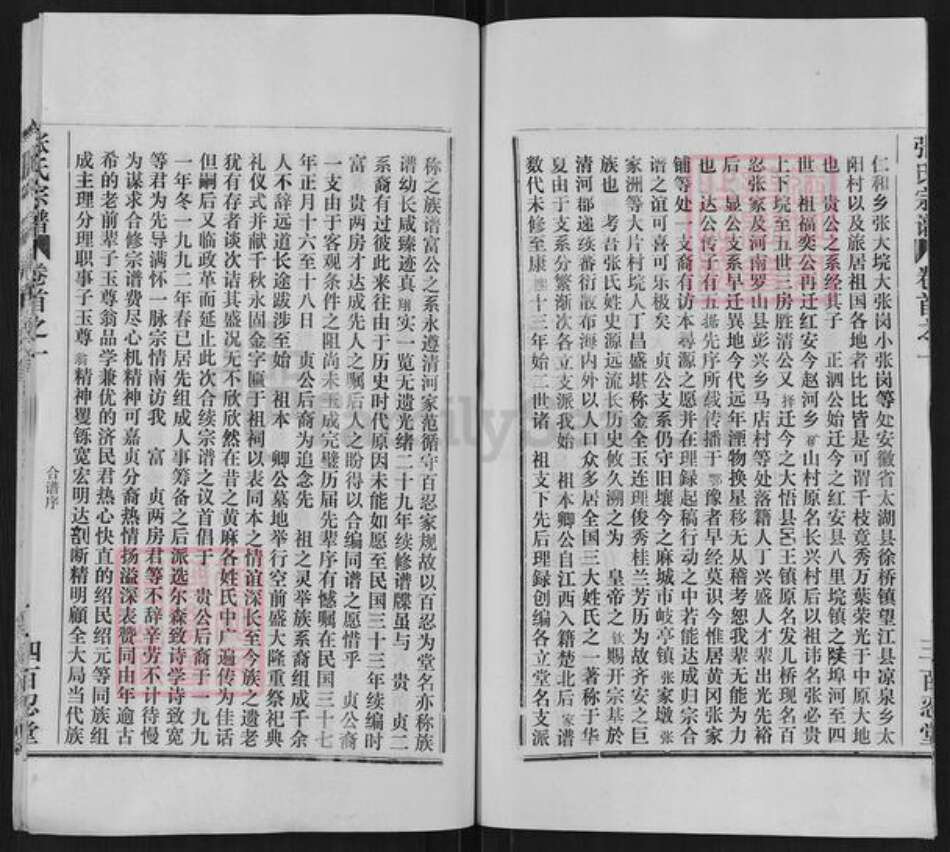 张氏宗谱 卷首之一 三 百忍堂
仁和乡张大垸大张岗小张岗等处安徽省太湖县徐桥镇望江县凉泉乡太
阳村以及旅居祖国各地者比比皆是可谓千枝竟秀万葉荣光于中原大地
也 贵公之系经其子 正泗公始迁今之红安县八里垸镇之陡埠河至四
世祖福奕公再迁红安今赵河乡矿山村原名长兴村后以祖讳名张必贵
上下垸至五世三房胜清公又择迁今之大悟县区王镇原名发儿桥现名百
忍张家及河南罗山县彭兴乡马店村等处落籍人丁兴盛人才辈出光先裕
后 显公支系早迁异地今代远年湮物换星移无从稽考恕我辈无能为力
也 达公传子有五据先序所线传播于鄂豫者早经莫识今惟居黄冈张家
铺等处一支裔有访本寻源之愿并在理録起稿行动之中若能达成归宗合
谱之谊可喜可乐极矣 贞公支系仍守旧壤今之麻城市岐亭镇张家墩张
家洲等大片村垸人丁昌盛堪称金全玉连理俊秀桂兰芳历为故齐安之巨
族也 考吾张氏姓史源远流长历史攸久溯之为 皇帝之钦赐开宗基於
清河郡递续蕃衍散布海内外以人口众多居全国三大姓氏之一著称于华
夏由于支系分繁渐次各立支派我始 祖本卿公自江西入籍楚北后家谱
数代未修至康熙十三年始二世诸 祖支下先后理録创编各立堂名支派
称之族谱富公之系永遵清河家范循守百忍家规故以百忍为堂名亦称族
谱幼长咸臻迹真翔实一览无遗光绪二十九年续修谱牒虽与 贵 贞二
系裔有过彼此来往由于历史时代原因未能如愿至民国三十三年续编时
富 贵两房才达成先人之嘱后人之盼得以合编同谱之愿惜乎 贞公裔
一支由于客观条件之阻尚未玉成完璧历届先辈序有憾嘱在民国三十七
年正月十六至十八日 贞公后裔为追念先 祖之灵举族系裔组成千余
人不辞远道长途跋涉至始 祖本 卿公墓地举行空前盛大隆重祭祀典
礼仪式并献千秋永固金字匾于祖祠以表同本之情谊深长至今族之遗老
犹有存者谈次诘其盛况无不欣欣然在昔之黄麻各姓氏中广遍传为佳话
但嗣后又临政革而延止此次合续宗谱之议首倡于 贵公后裔于一九九
一年冬一九九二年春已居先组成人事筹备之后派选尔森致诗学诗致宽
等君为先导满怀一脉宗情南访我 富 贞两房君等不辞辛劳不计待慢
为谋求合修宗谱费尽心机精神可嘉贞分裔热情扬溢深表赞同由年逾古
希的老前辈子玉尊翁品学兼优的济民君热心快直的绍民绍元等同族组
成主理分理职事子玉尊翁精神矍铄宽宏明达割断精明顧全大局当代族
张氏宗谱 卷首之一 合谱序 四 百忍堂